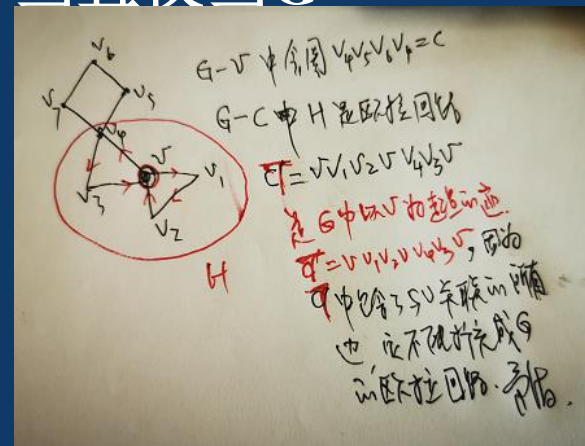 V₆
V₅
V₇
V₄
V
V₁
V₃
V₂
H
G-V中含圈V₄V₅V₆V₇=C
G-C中H是欧拉回路
T=VV₁V₂VV₄V₃V
是G中以V为起点的迹.
T=VV₁V₂VV₄V₃V,因为
T中包含了与V关联的所有
边 它不能扩充成G
的欧拉回路.矛盾.